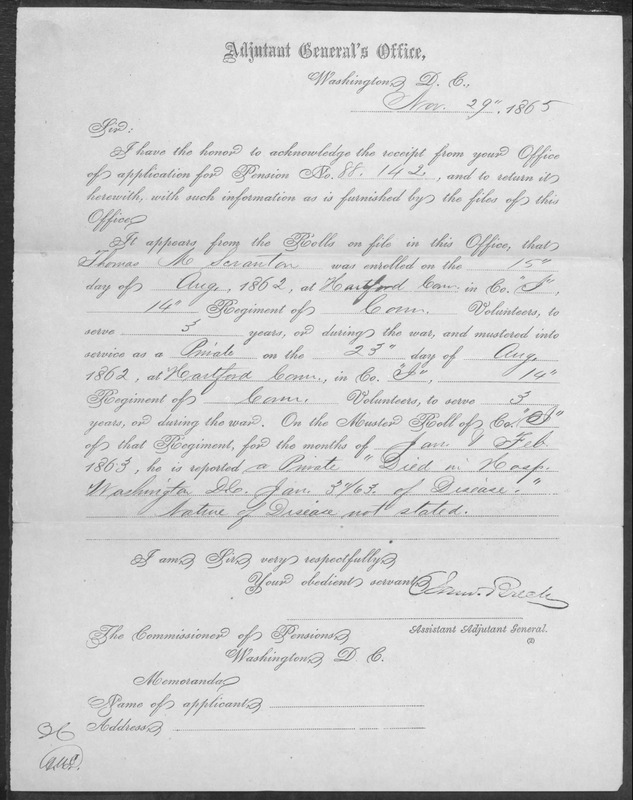 Adjutant General's Office,
Washington, D. C.,
Nov. 29", 1865
Sir:
I have the honor to acknowledge the receipt from your Office
of application for Pension No. 88.142, and to return it
herewith, with such information as is furnished by the files of this
Office.
It appears from the Rolls on file in this Office, that
Thomas M Scranton was enrolled on the 15"
day of Aug, 1862, at Hartford Conn. in Co. "I",
14" Regiment of Conn. Volunteers, to
serve 3 years, or during the war, and mustered into
service as a Private on the 23" day of Aug,
1862, at Hartford Conn., in Co. "I", 14"
Regiment of Conn. Volunteers, to serve 3
years, or during the war. On the Muster Roll of Co. "I"
of that Regiment, for the months of Jan & Feb
1863, he is reported a Private "Died in Hosp.
Washington D.C. Jan. 3"/63. of Disease."
Nature of Disease not stated.
I am, Sir, very respectfully,
Your obedient servant,
Saml. Breck
The Commissioner of Pensions, Assistant Adjutant General.
(2)
Washington, D. C.
Memoranda,
Name of applicant,
Address,